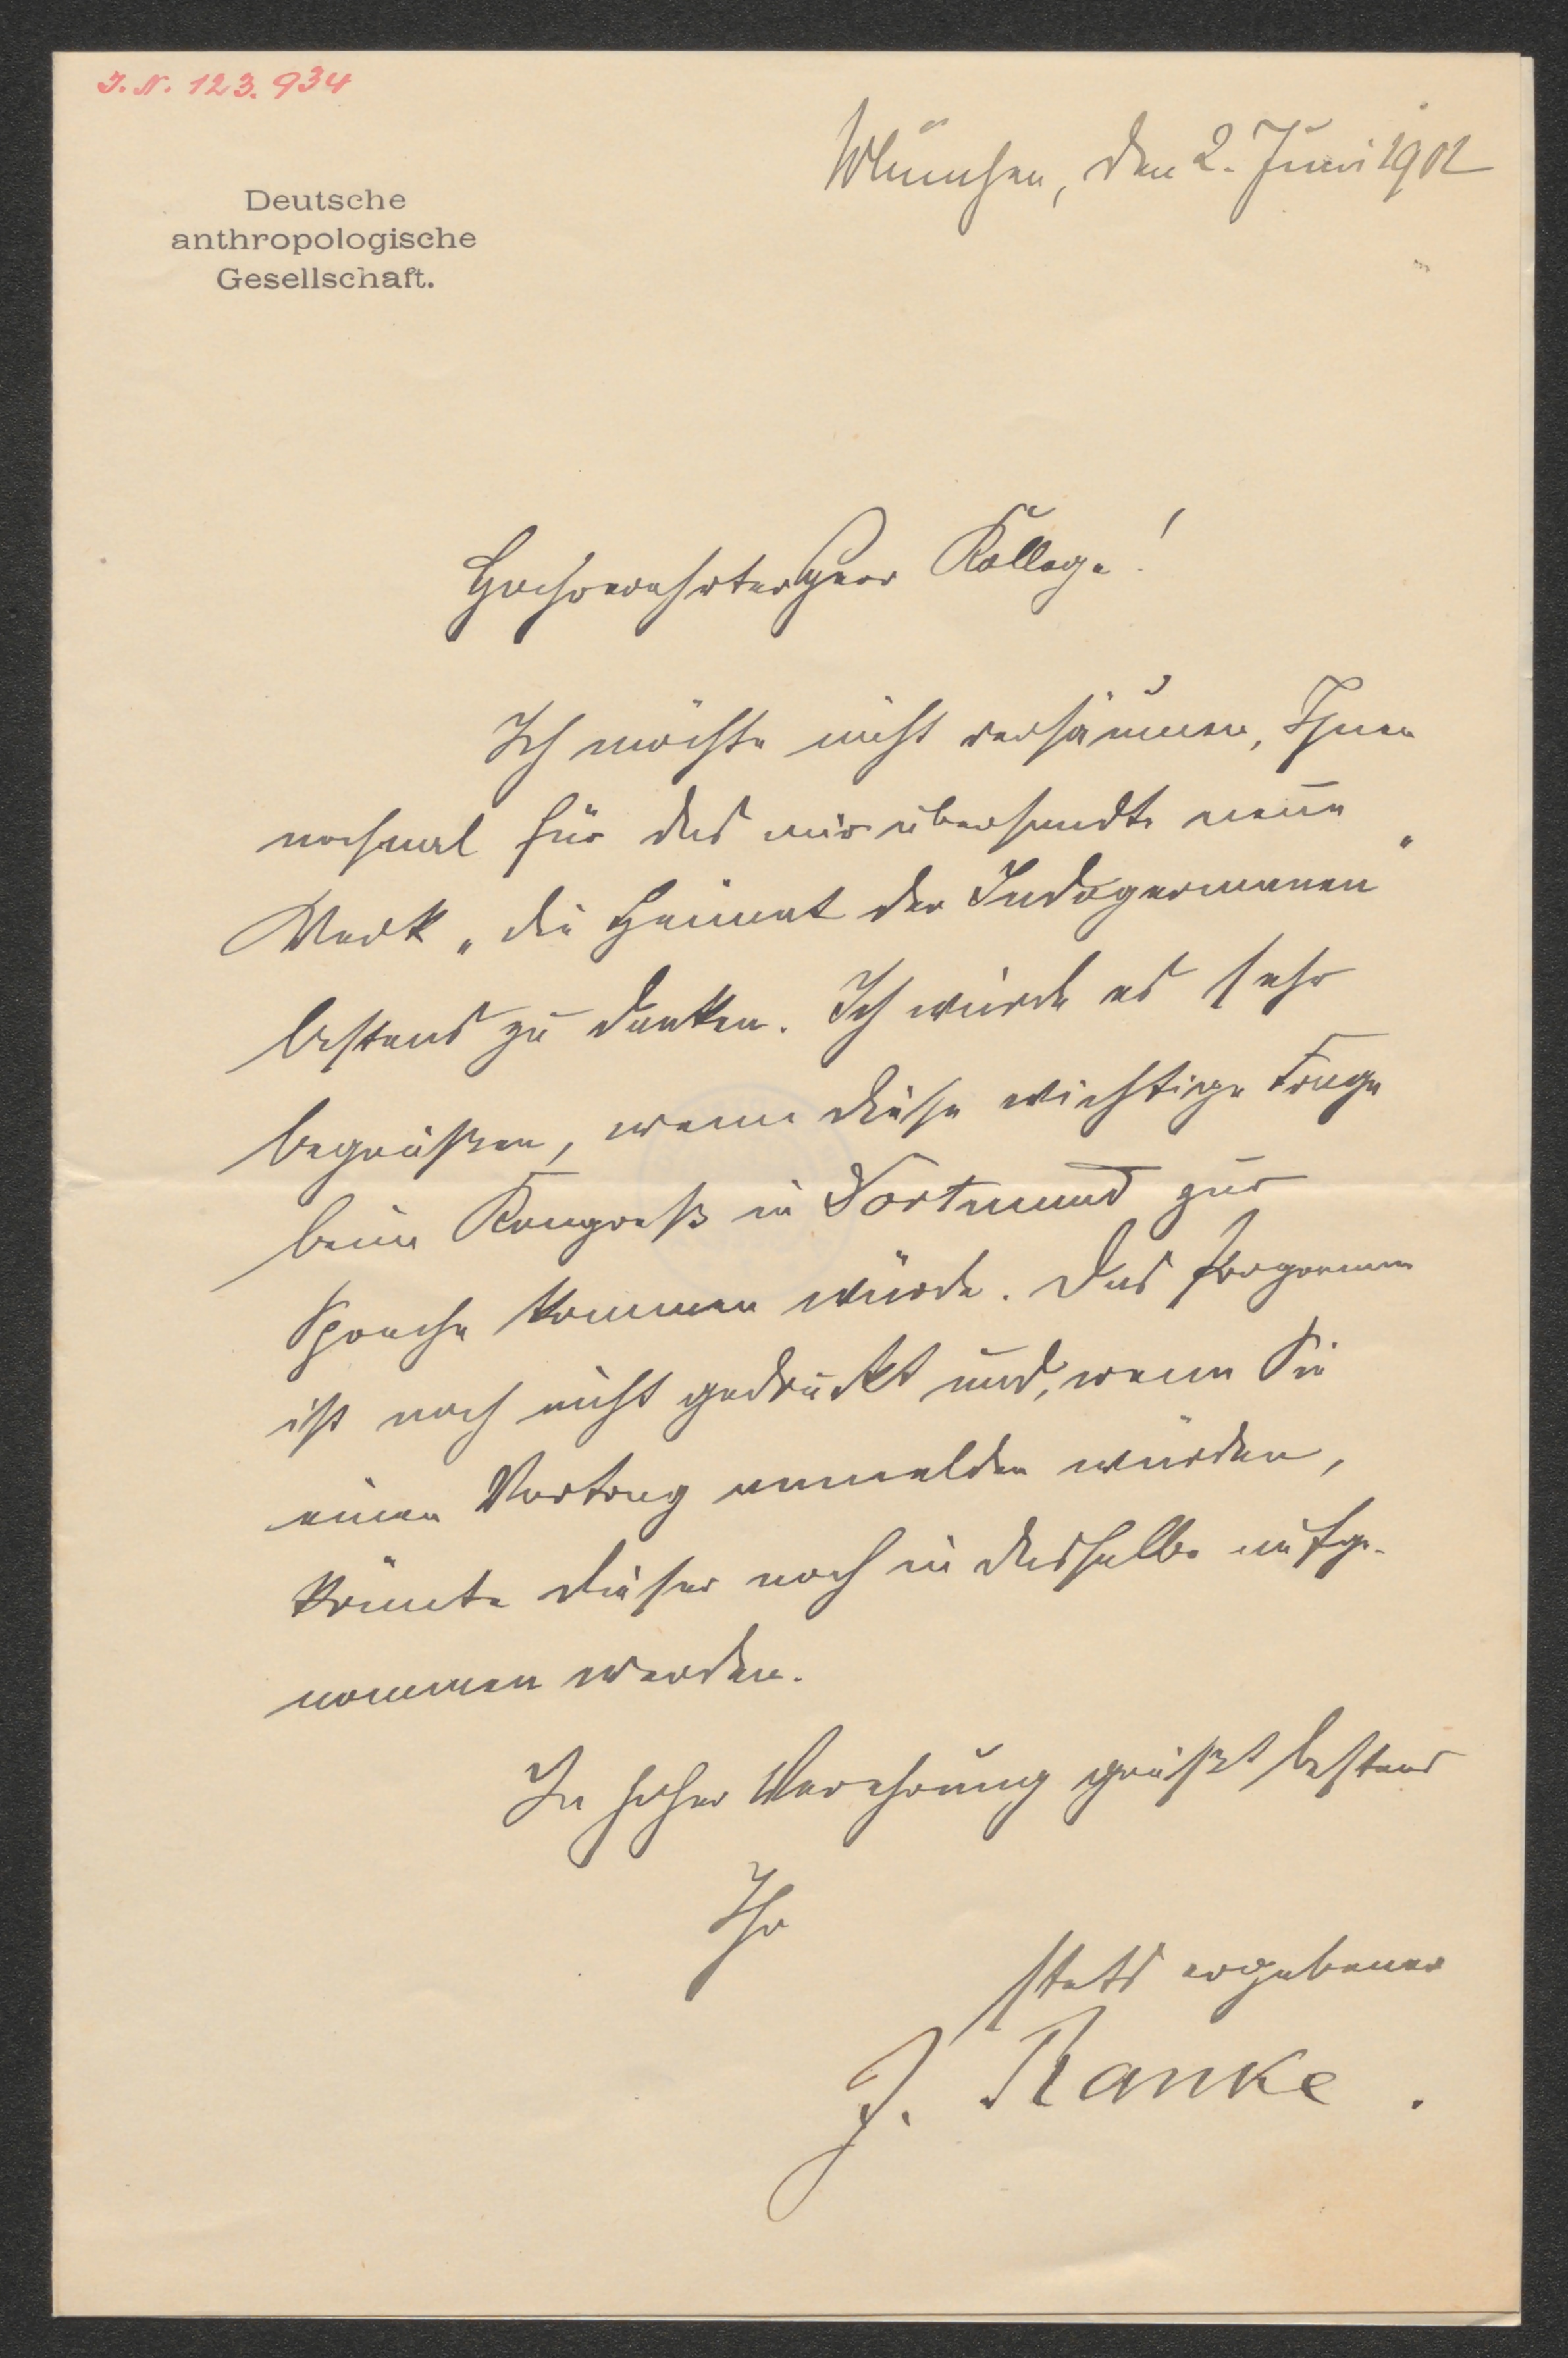 J. N. 123.934
Deutsche
anthropologische
Gesellschaft.
München, den 2. Juni 1902
Hochverehrter Herr Kollege!
Ich möchte nicht versäumen, Ihnen
nochmal für das mir übersandte neue
Werk „die Heimat der Indogermanen“
bestens zu danken. Ich würde es sehr
begrüßen, wenn diese wichtige Frage
beim Kongreß in Dortmund zur
Sprache kommen würde. Das Programm
ist noch nicht gedruckt und, wenn Sie
einen Vortrag anmelden würden,
könnte dieser noch in dasselbe aufge-
nommen werden.
In hoher Verehrung grüßt bestens
Ihr
stets ergebener
J. Ranke.